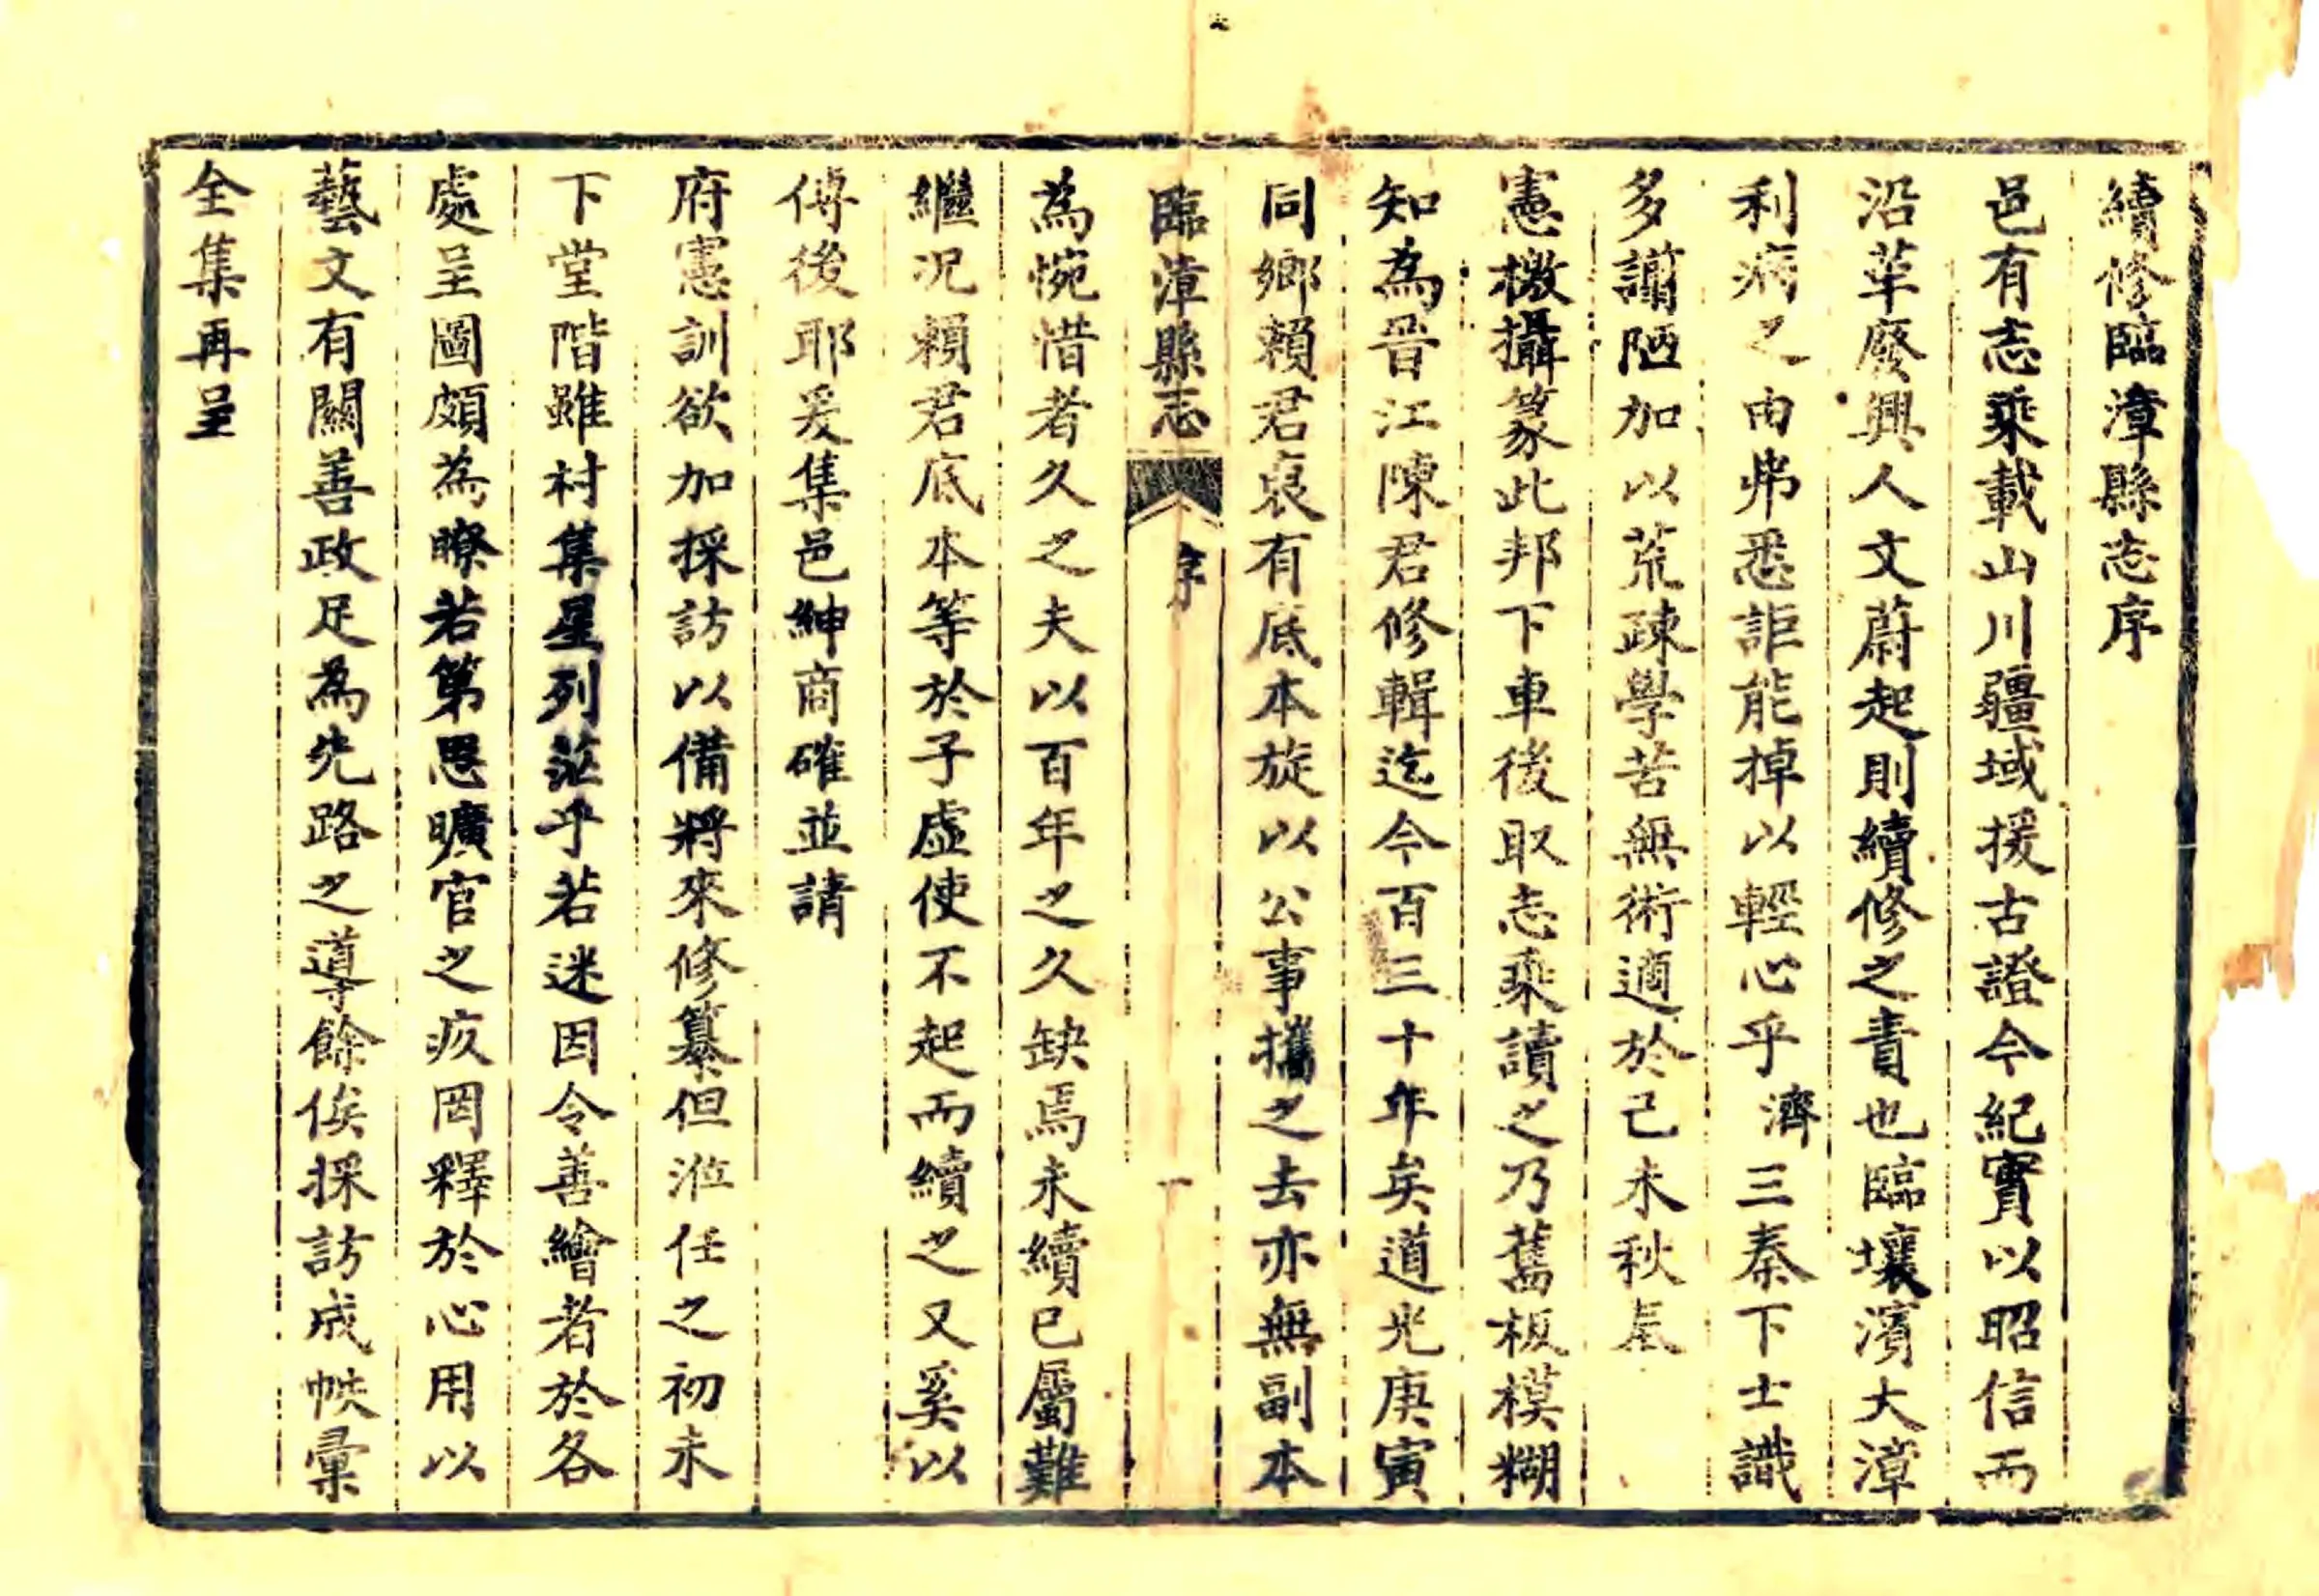 續修臨漳縣志序
邑有志乘載山川疆域援古證今紀實以昭信而
沿革廢興人文蔚起則續修之責也臨壤濱大漳
利病之由弗悉詎能掉以輕心乎濟三秦下士識
多謭陋加以荒疎學苦無術適於己未秋奉
憲檄攝篆此邦下車後取志乘讀之乃舊板模糊
知為晉江陳君修輯迄今百三十年矣道光庚寅
同鄉賴君裒有底本旋以公事攜之去亦無副本
臨漳縣志 序 一
為惋惜者久之夫以百年之久缺焉未續已屬難
繼况賴君底本等於子虛使不起而續之又奚以
傅後耶爰集邑紳商確並請
府憲訓欲加採訪以備將來修纂但涖任之初未
下堂階雖村集星列茫乎若迷因令善繪者於各
處呈圖頗為瞭若第恩曠官之疚罔釋於心用以
藝文有關善政足為先路之導餘俟採訪成帙彙
全集再呈